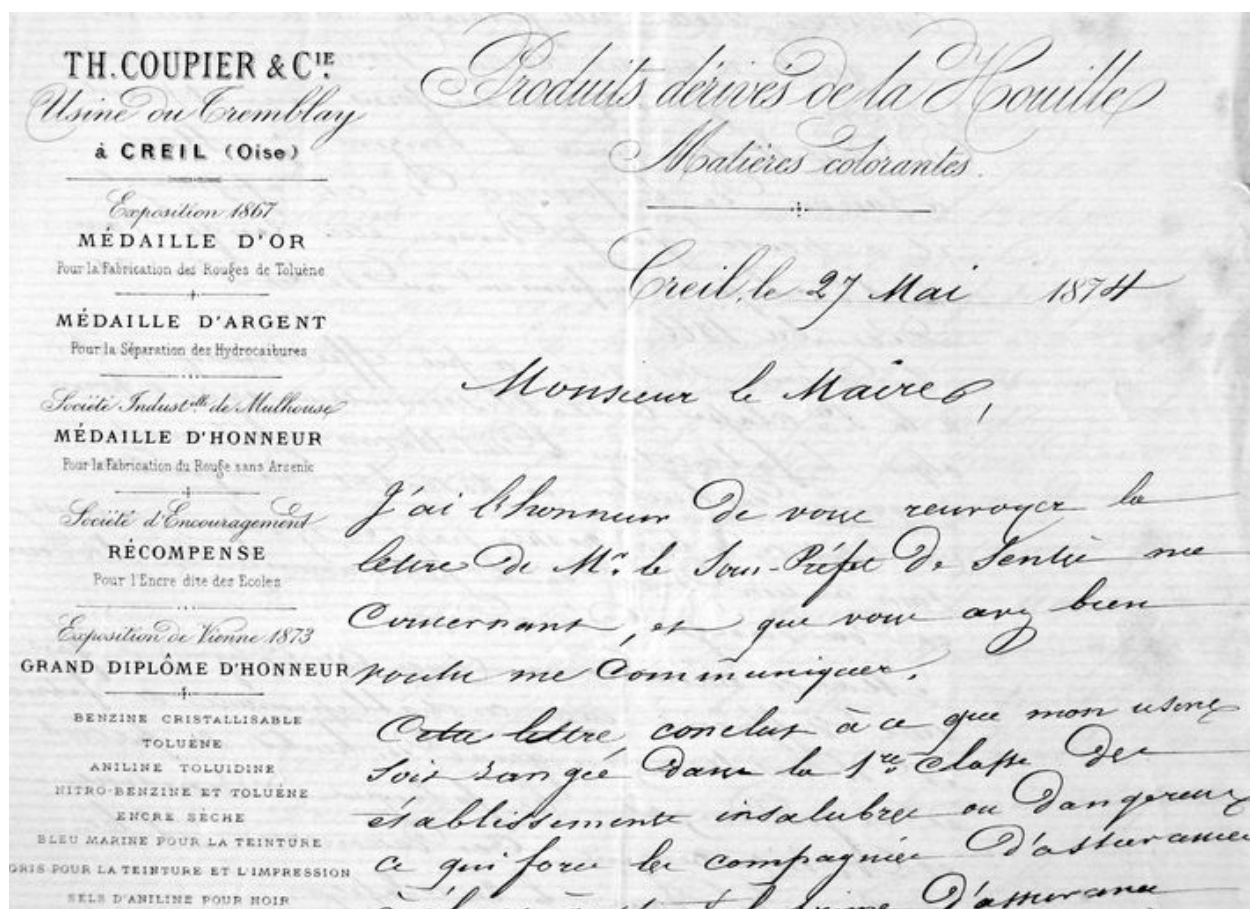 TH. COUPIER & CIE.
Usine du Tremblay
à CREIL (Oise)
Exposition 1867
MÉDAILLE D'OR
Pour la Fabrication des Rouges de Toluène
MÉDAILLE D'ARGENT
Pour la Séparation des Hydrocarbures
Société Industelle de Mulhouse
MÉDAILLE D'HONNEUR
Pour la Fabrication du Rouge sans Arsenic
Société d'Encouragement
RÉCOMPENSE
Pour l'Encre dite des Ecoles
Exposition de Vienne 1873
GRAND DIPLÔME D'HONNEUR
BENZINE CRISTALLISABLE
TOLUÈNE
ANILINE TOLUIDINE
NITRO-BENZINE ET TOLUÈNE
ENCRE SÈCHE
BLEU MARINE POUR LA TEINTURE
GRIS POUR LA TEINTURE ET L'IMPRESSION
SELS D'ANILINE POUR NOIR
Produits dérivés de la Houille
Matières colorantes.
Creil, le 27 Mai 1874
Monsieur le Maire,
J'ai l'honneur de vous renvoyer la
lettre de Mr. le Sous-Préfet de Senlis me
Concernant, et que vous avez bien
voulu me communiquer.
Cette lettre, conclut à ce que mon usine
soit rangée dans la 1re classe des
établissements insalubres ou dangereux
ce qui force les compagnies d'assurance
prime d'assurance